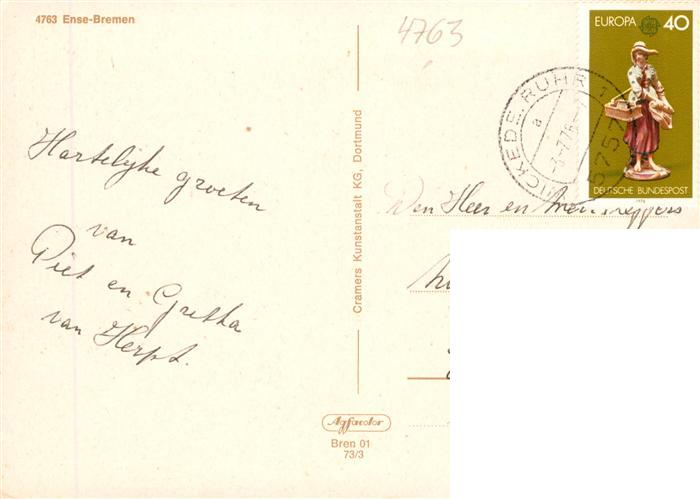 4763 Ense-Bremen
4763
EUROPA 40
DEUTSCHE BUNDESPOST
1976
WICKEDE, RUHR 1
a
5757
Hartelijke groeten
van
Piet en Gretha
van Herpt.
Cramers Kunstanstalt KG, Dortmund
Den Heer en
Agfacolor
Bren 01
73/3